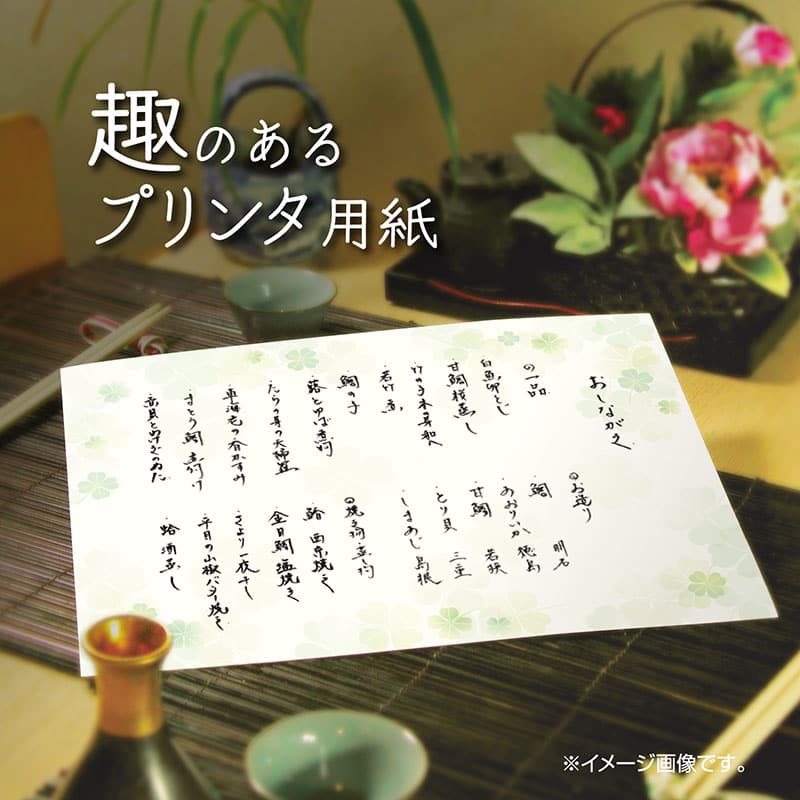 趣のある
プリンタ用紙
おしながき
一品
白魚卵とじ
甘鯛桜蒸し
竹の子木の芽和え
若竹煮
鯛の子
蕗とゆば煮付
たらの芽の天婦羅
車海老の
鯛煮付け
赤貝とわけぎのぬた
◎お造り
鯛 明石
あおりいか 徳島
甘鯛 若狭
とり貝 三重
しまあじ 島根
◎焼き物煮物
西京焼き
金目鯛 塩焼き
さより一夜干し
平目の山椒バター焼き
蛤酒蒸し
※イメージ画像です。